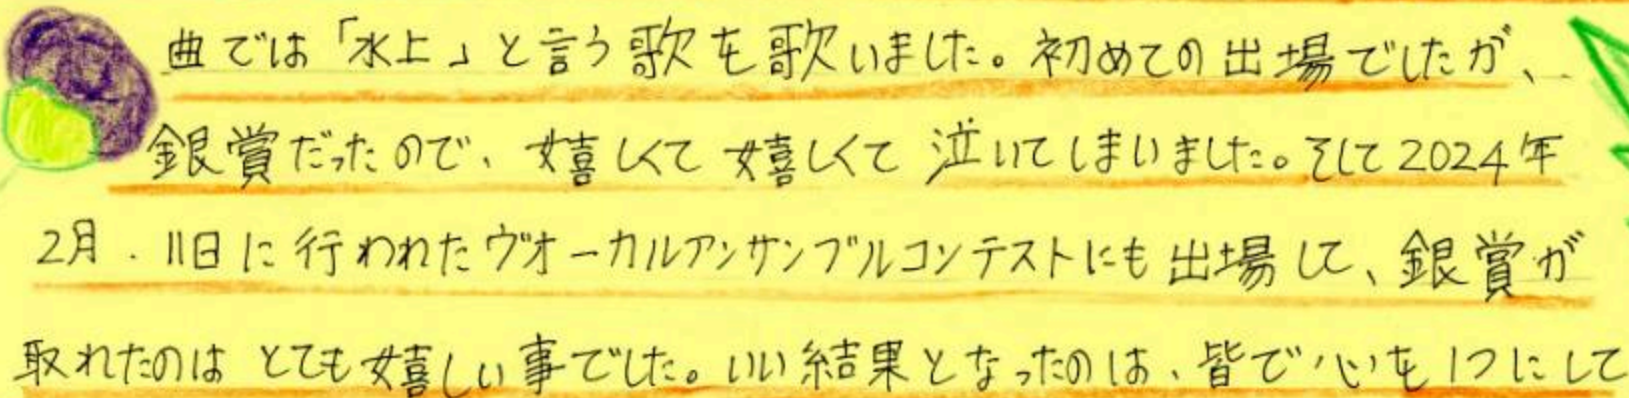 曲では「水上」と言う歌を歌いました。初めての出場でしたが、
銀賞だったので、嬉しくて嬉しくて泣いてしまいました。そして2024年
2月.11日に行われたヴオーカルアンサンブルコンテストにも出場して、銀賞が
取れたのはとても嬉しい事でした。いい結果となったのは、皆で心を1つにして